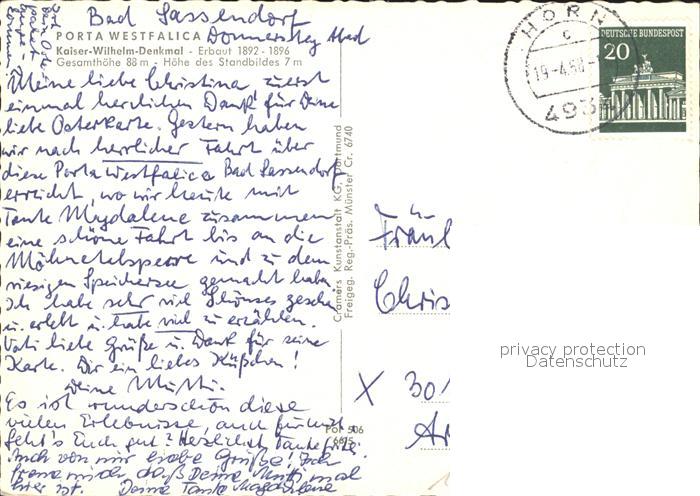 Bad Sassendorf
Donnerstag Abend
PORTA WESTFALICA
Kaiser-Wilhelm-Denkmal - Erbaut 1892 - 1896
Gesamthöhe 88 m - Höhe des Standbildes 7 m
Meine liebe Christina, zuerst
einmal herzlichen Dank für Deine
liebe Osterkarte. Gestern haben
wir nach herrlicher Fahrt über
diese Porta Westfalica Bad Sassendorf
erreicht, wo wir heute mit
Tante Magdalene zusammen
eine schöne Fahrt bis an die
Möhnetalsperre und zu dem
riesigen Speichersee gemacht haben.
Ich habe sehr viel Schönes gesehen
u. erlebt u. habe viel zu erzählen.
Vati liebe Grüße u. Dank für seine
Karte. Dir ein liebes Küßchen!
Deine Mutti.
Es ist wunderschön diese
vielen Erlebnisse, auch für mich.
Geht's Euch gut? Herzlichst Tante
Auch von mir liebe Grüße! Ich
freue mich daß Deine Mutti mal
hier ist. Deine Tante Magdalene
Cramers Kunstanstalt KG, Dortmund
Freigeg. Reg.-Präs. Münster Cr. 6740
Por 506
HORN
c
19.-4.68-
493
DEUTSCHE BUNDESPOST
20
Fräul
Chris
X 301
Ar
privacy protection
Datenschutz